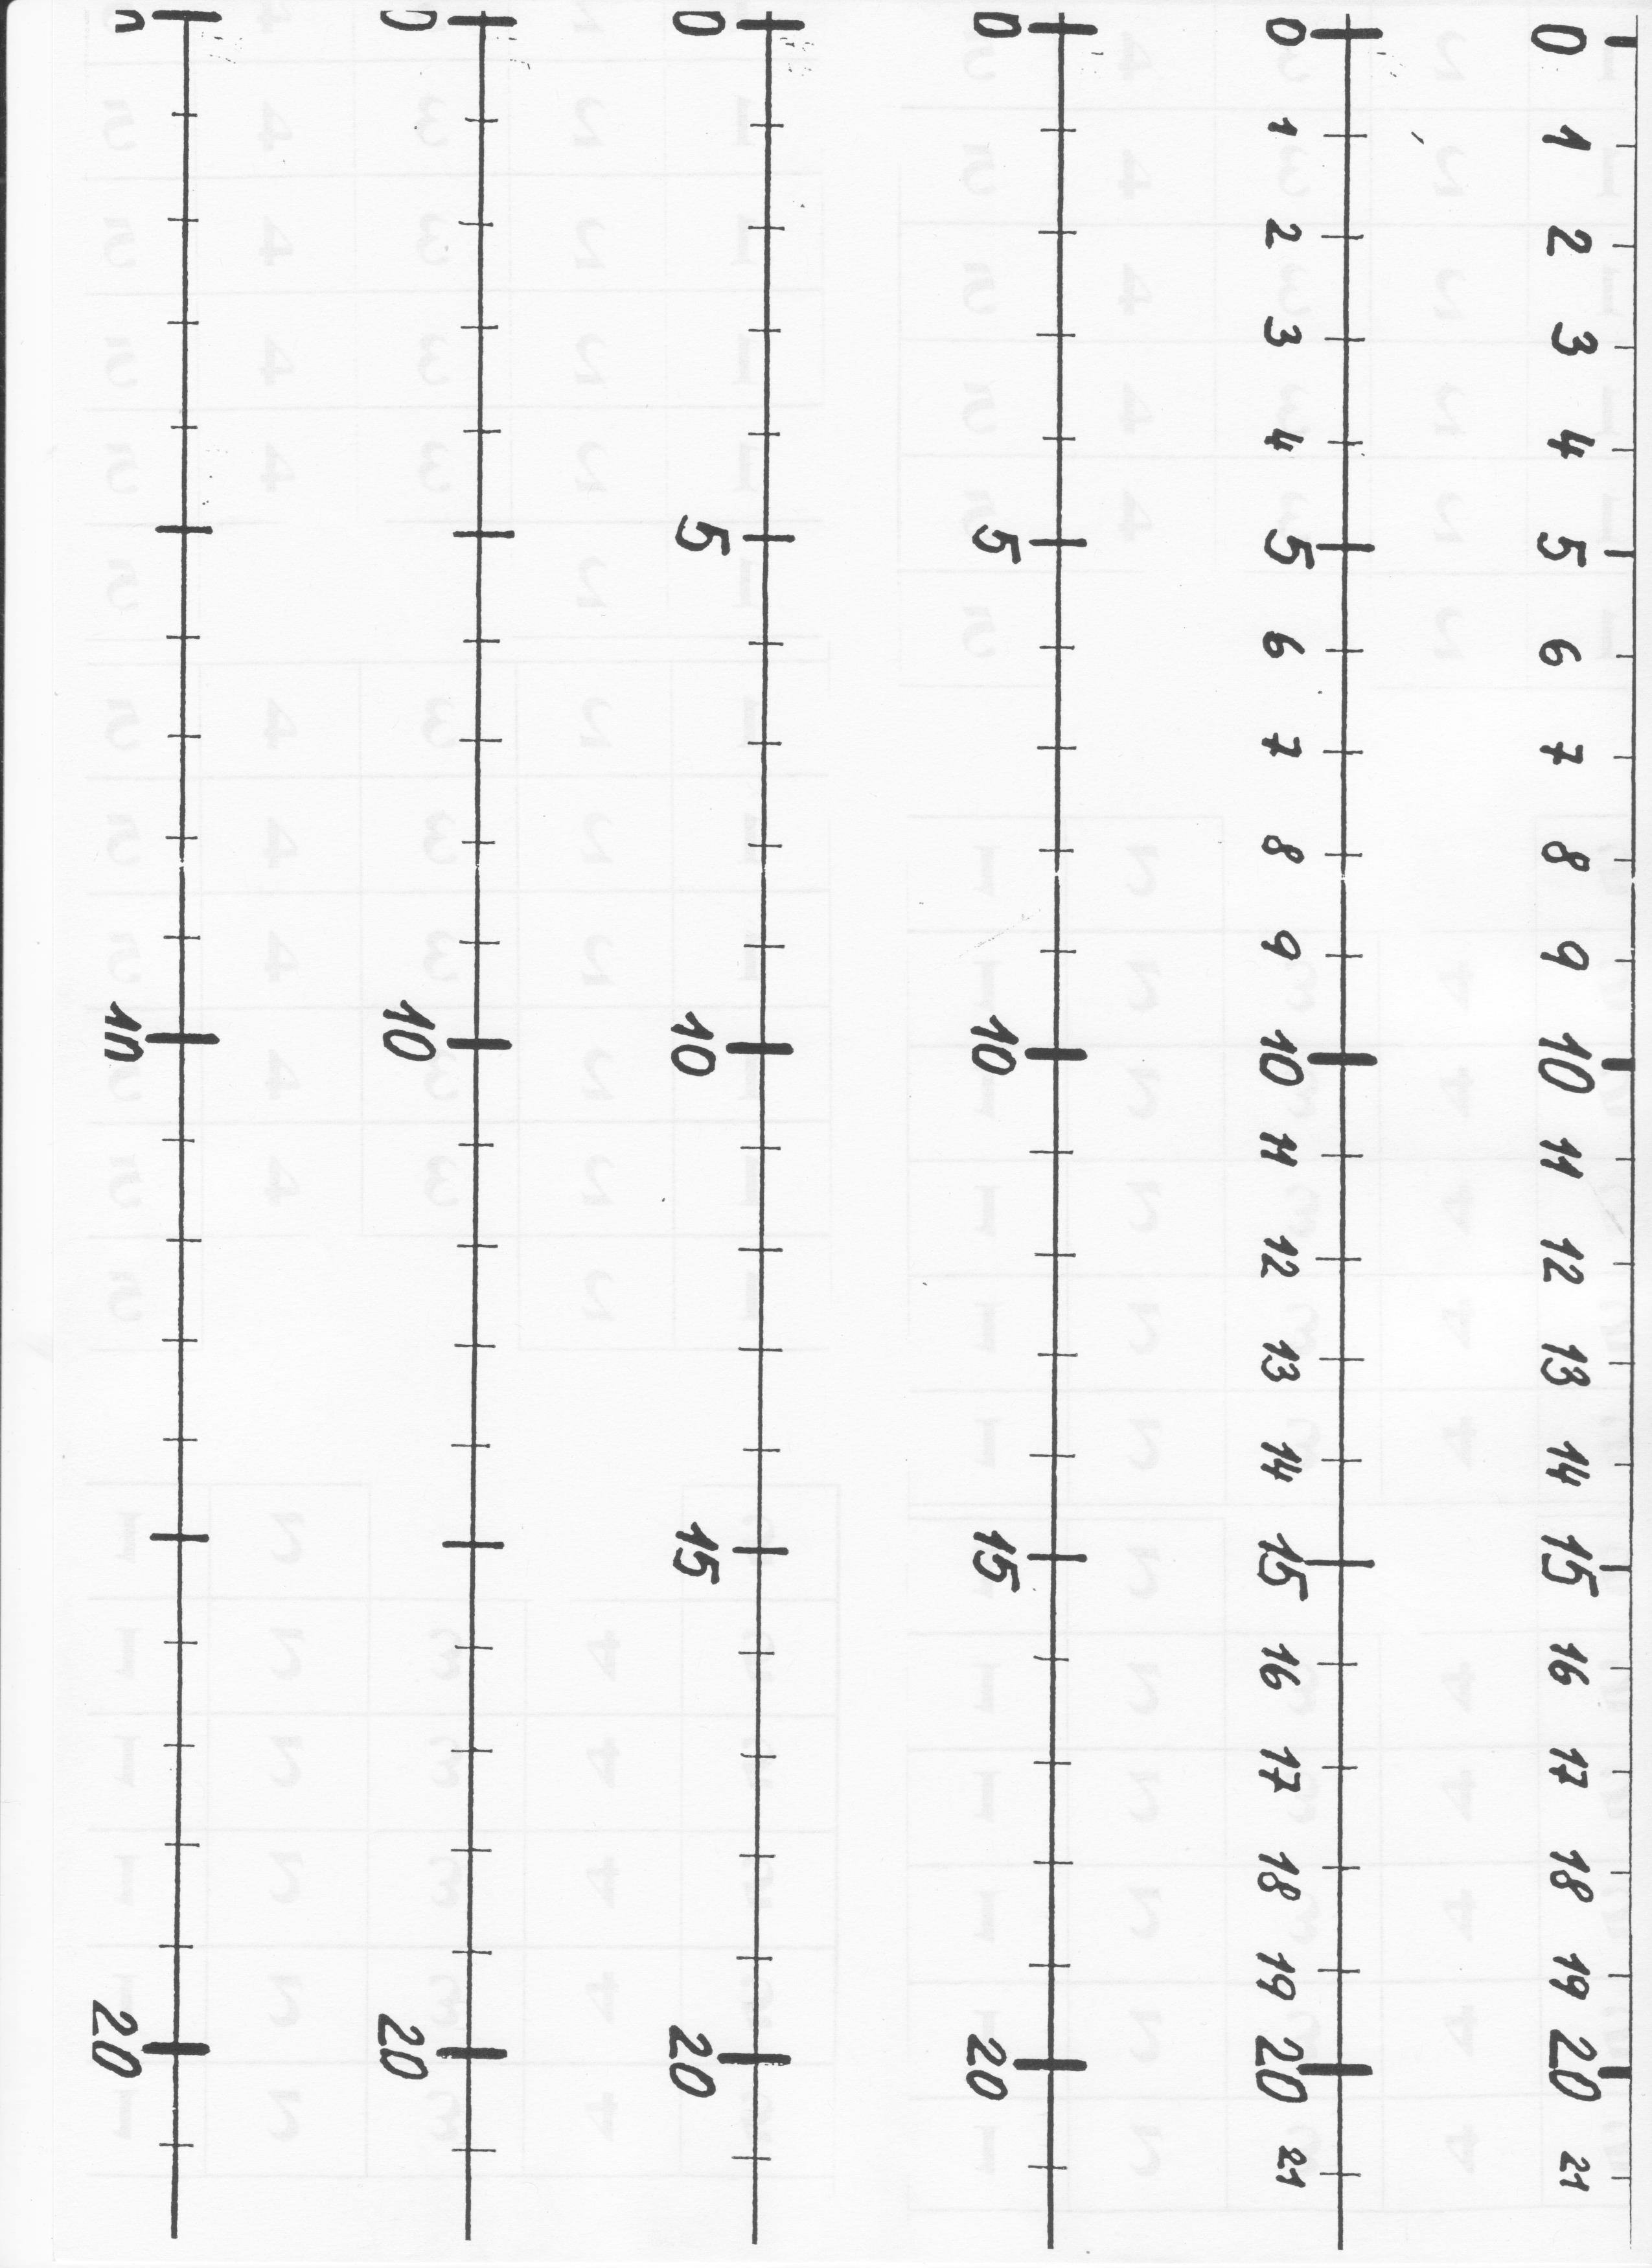 0 1 2 3 4 5 6 7 8 9 10 11 12 13 14 15 16 17 18 19 20 21
0 1 2 3 4 5 6 7 8 9 10 11 12 13 14 15 16 17 18 19 20 21
0 5 10 15 20
0 5 10 15 20
0 10 20
0 10 20